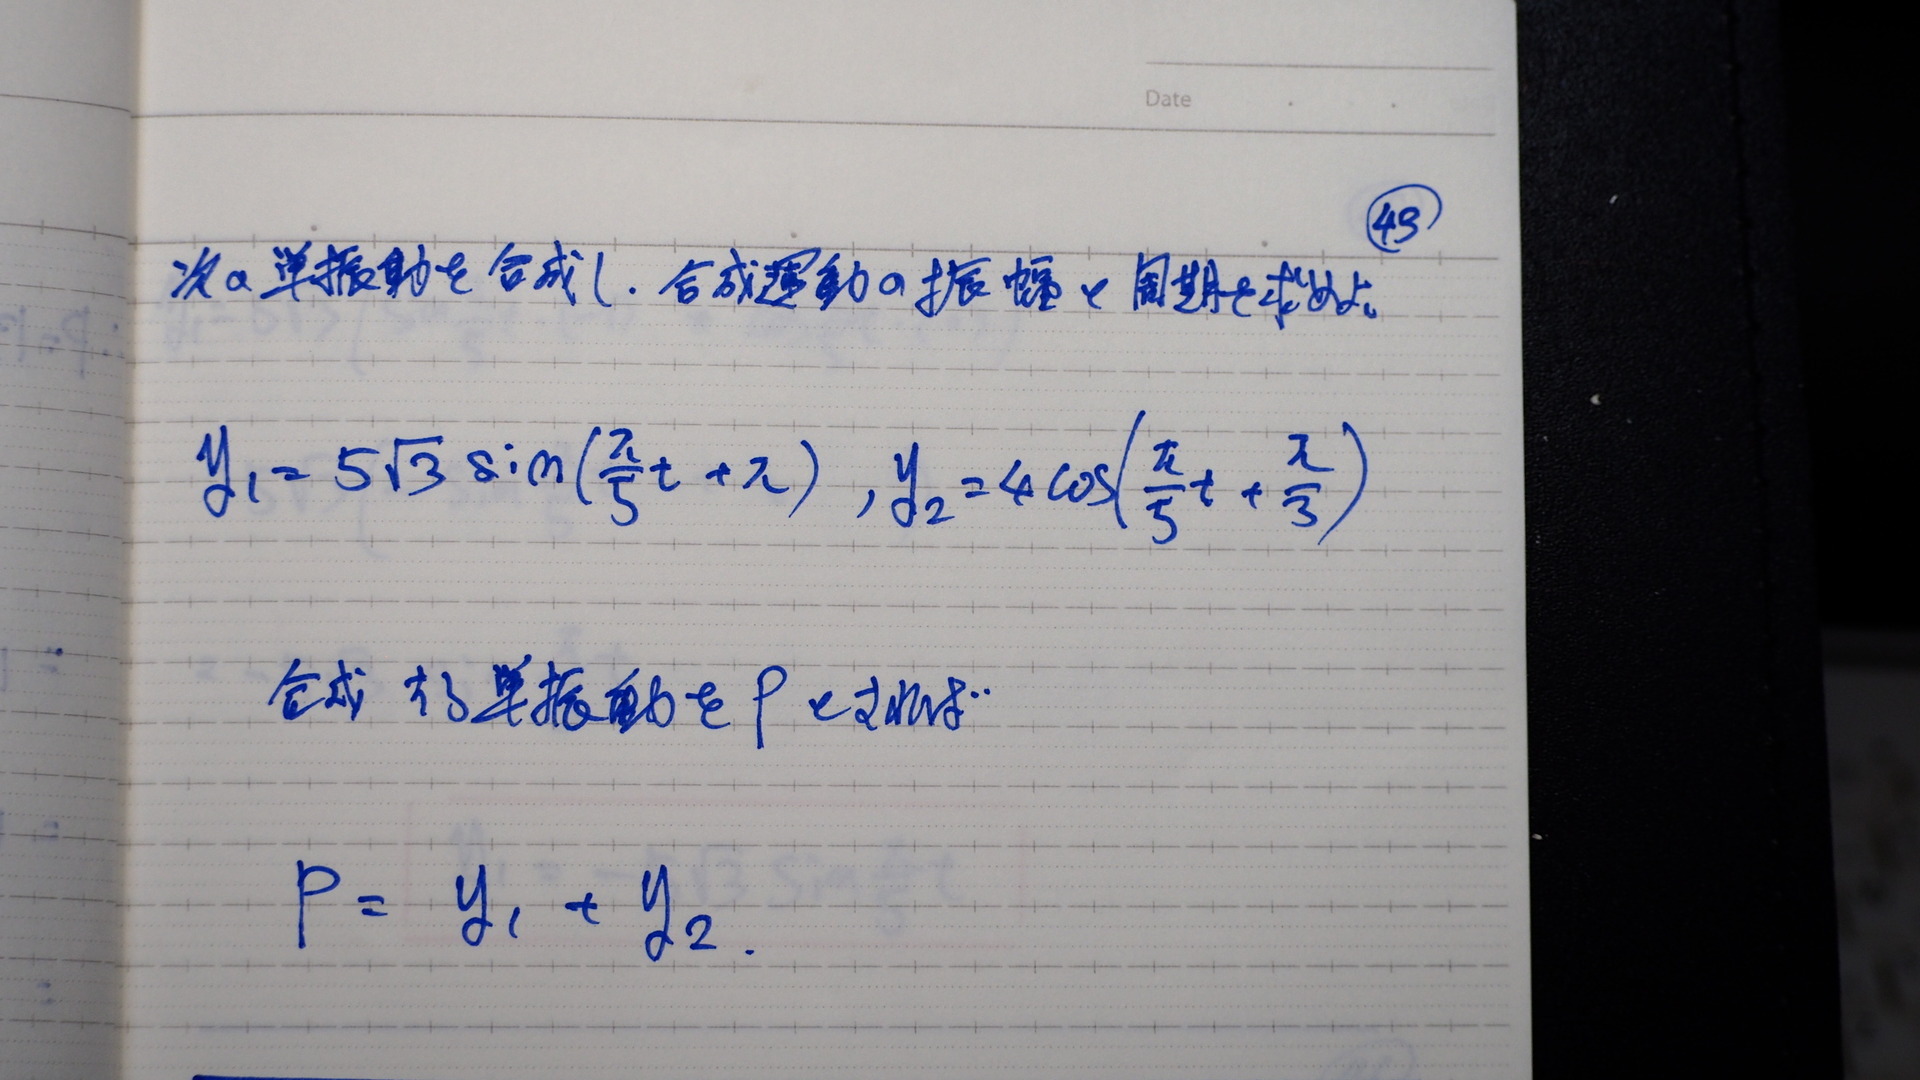 Date
㊾
次の単振動を合成し、合成運動の振幅と周期を求めよ。
y₁ = 5√3 sin(π/5 t + π), y₂ = 4 cos(π/5 t + π/3)
合成する単振動を P とすれば…
P = y₁ + y₂.